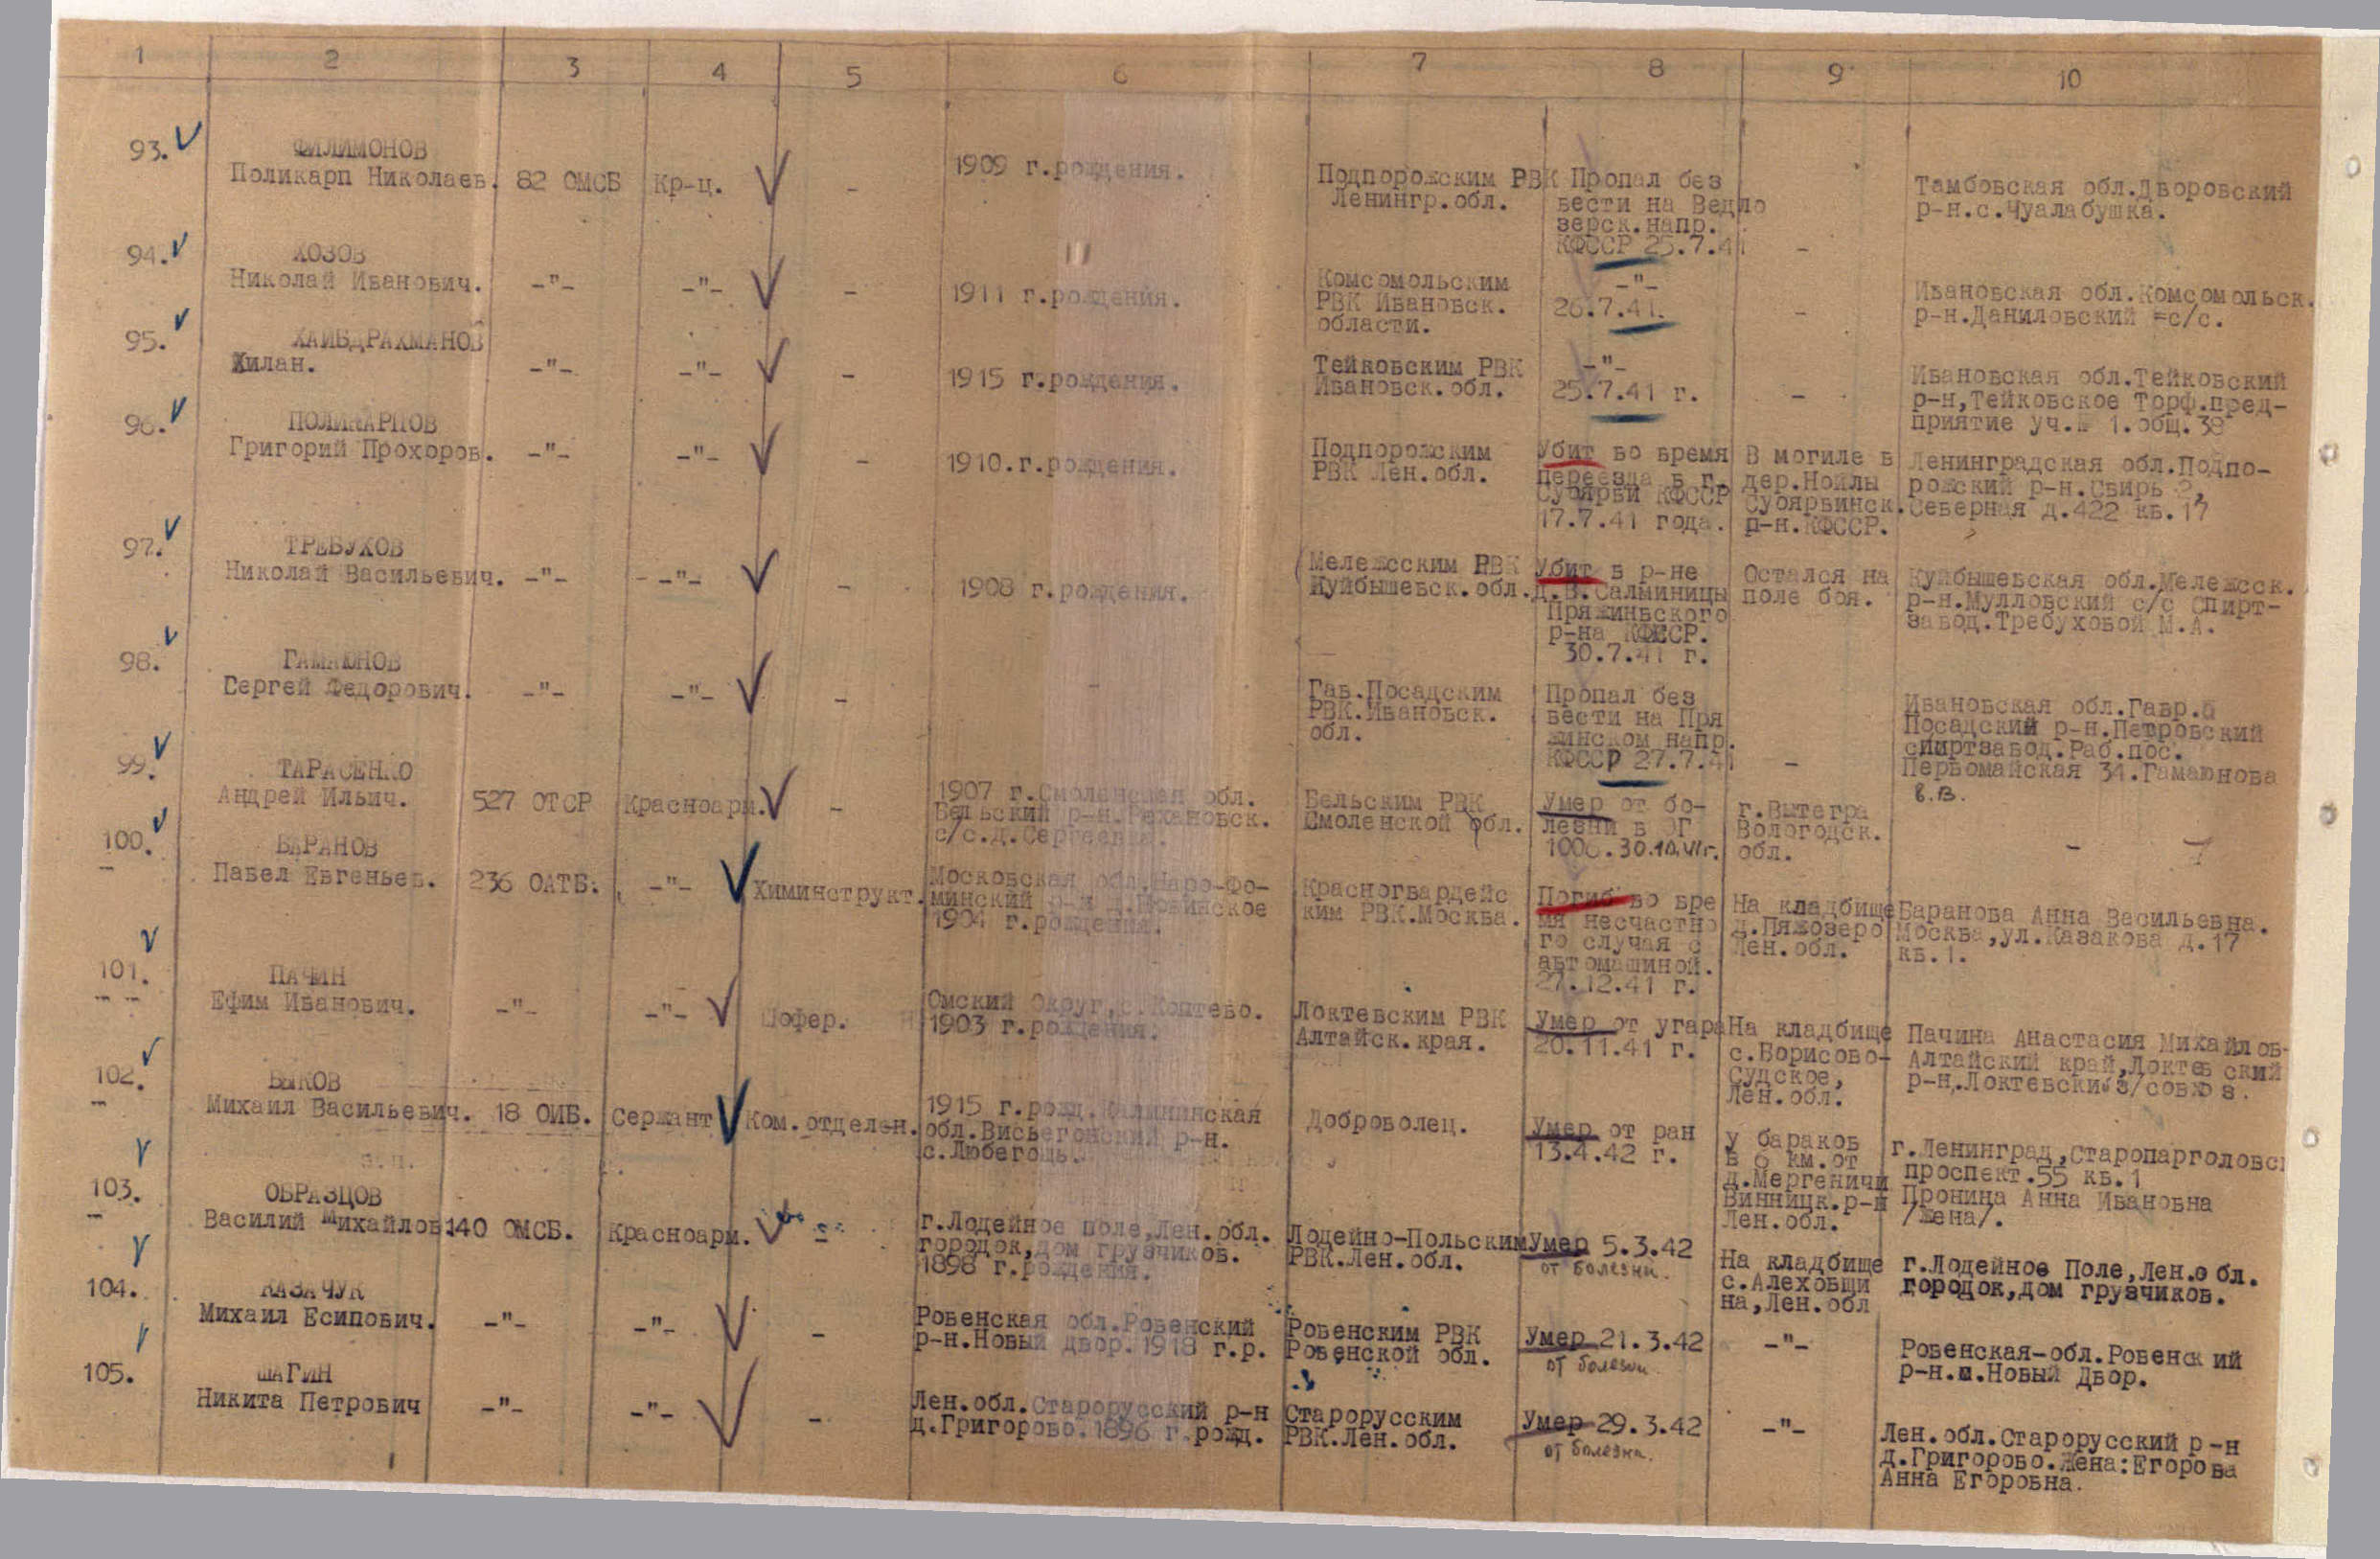 1 2 3 4 5 6 7 8 9 10
93.
ФИЛИМОНОВ
Поликарп Николаев.
82 ОМСБ
Кр-ц.
-
1909 г.рождения.
Подпорожским РВК
Ленингр.обл.
Пропал без
вести на Ведло
зерск.напр.
КФССР 25.7.41
-
Тамбовская обл.Дворовский
р-н.с.Чуалабушка.
94.
ХОЗОВ
Николай Иванович.
-"-
-"-
-
1911 г.рождения.
Комсомольским
РВК Ивановск.
области.
-"-
26.7.41.
-
Ивановская обл.Комсомольск.
р-н.Даниловский =с/с.
95.
ХАИБДРАХМАНОВ
Хилан.
-"-
-"-
-
1915 г.рождения.
Тейковским РВК
Ивановск.обл.
-"-
25.7.41 г.
-
Ивановская обл.Тейковский
р-н,Тейковское Торф.пред-
приятие уч.№ 1.общ.38
96.
ПОЛИКАРПОВ
Григорий Прохоров.
-"-
-"-
-
1910.г.рождения.
Подпорожским
РВК Лен.обл.
Убит во время
переезда в г.
Суоярви КФССР
17.7.41 года.
В могиле в
дер.Нойлы
Суоярвинск.
р-н.КФССР.
Ленинградская обл.Подпо-
рожский р-н.Свирь 2,
Северная д.422 кв.17
97.
ТРЕБУХОВ
Николай Васильевич.
-"-
-"-
-
1908 г.рождения.
Мележсским РВК
Куйбышевск.обл.
Убит в р-не
д.В.Салминицы
Пряжиньского
р-на КФССР.
30.7.41 г.
Остался на
поле боя.
Куйбышевская обл.Мележсск.
р-н.Мулловский с/с Спирт-
завод.Требуховой М.А.
98.
ГАМАЮНОВ
Сергей Федорович.
-"-
-"-
-
-
Гав.Посадским
РВК.Ивановск.
обл.
Пропал без
вести на Пря
жинском напр.
КФССР 27.7.41
-
Ивановская обл.Гавр.
Посадский р-н.Петровский
спиртзавод.Раб.пос.
Первомайская 34.Гамаюнова
в.в.
99.
ТАРАСЕНКО
Андрей Ильич.
527 ОТСР
Красноарм.
-
1907 г.Смоленская обл.
Бельский р-н.Рехановск.
с/с.д.Сергеевка.
Бельским РВК
Смоленской обл.
Умер от бо-
лезни в ЭГ
г.Вытегра
Вологодск.
обл.
-
100.
БАРАНОВ
Павел Евгеньев.
236 ОАТБ.
-"-
Химинструкт.
Московская обл.Наро-Фо-
минский р-н
1904 г.рождения.
Красногвардейс
ким РВК.Москва.
Погиб во вре
мя несчастно
го случая с
автомашиной.
27.12.41 г.
На кладбище
д.Пяжозеро
Лен.обл.
Баранова Анна Васильевна.
Москва,ул.Казакова д.17
кв.1.
101.
ПАЧИН
Ефим Иванович.
-"-
-"-
Шофер.
Омский Округ,с.Коптево.
1903 г.рождения.
Локтевским РВК
Алтайск.края.
Умер от угара
20.11.41 г.
На кладбище
с.Борисово-
Судское,
Лен.обл.
Пачина Анастасия Михайлов-
Алтайский край,Локтевский
р-н.Локтевский з/совхоз.
102.
БЫКОВ
Михаил Васильевич.
18 ОИБ.
Сержант
Ком.отделен.
1915 г.рожд.Калининская
обл.Висьегонский р-н.
с.Любегощь.
Доброволец.
Умер от ран
13.4.42 г.
у бараков
в 6 км.от
д.Мергеничи
Винницк.р-н
Лен.обл.
г.Ленинград,Старопарголовс
проспект.55 кв.1
Пронина Анна Ивановна
/жена/.
103.
ОБРАЗЦОВ
Василий Михайлов.
140 ОМСБ.
Красноарм.
-
г.Лодейное поле,Лен.обл.
городок,дом грузчиков.
1898 г.рождения.
Лодейно-Польским
РВК.Лен.обл.
Умер 5.3.42
от болезни.
На кладбище
с.Алеховщи
на,Лен.обл
г.Лодейное Поле,Лен.обл.
городок,дом грузчиков.
104.
КАЗАЧУК
Михаил Есипович.
-"-
-"-
-
Ровенская обл.Ровенский
р-н.Новый двор.1918 г.р.
Ровенским РВК
Ровенской обл.
Умер 21.3.42
от болезни
-"-
Ровенская-обл.Ровенский
р-н.м.Новый Двор.
105.
ШАГИН
Никита Петрович
-"-
-"-
-
Лен.обл.Старорусский р-н
д.Григорово.1896 г.рожд.
Старорусским
РВК.Лен.обл.
Умер 29.3.42
от болезни.
-"-
Лен.обл.Старорусский р-н
д.Григорово.Жена:Егорова
Анна Егоровна.